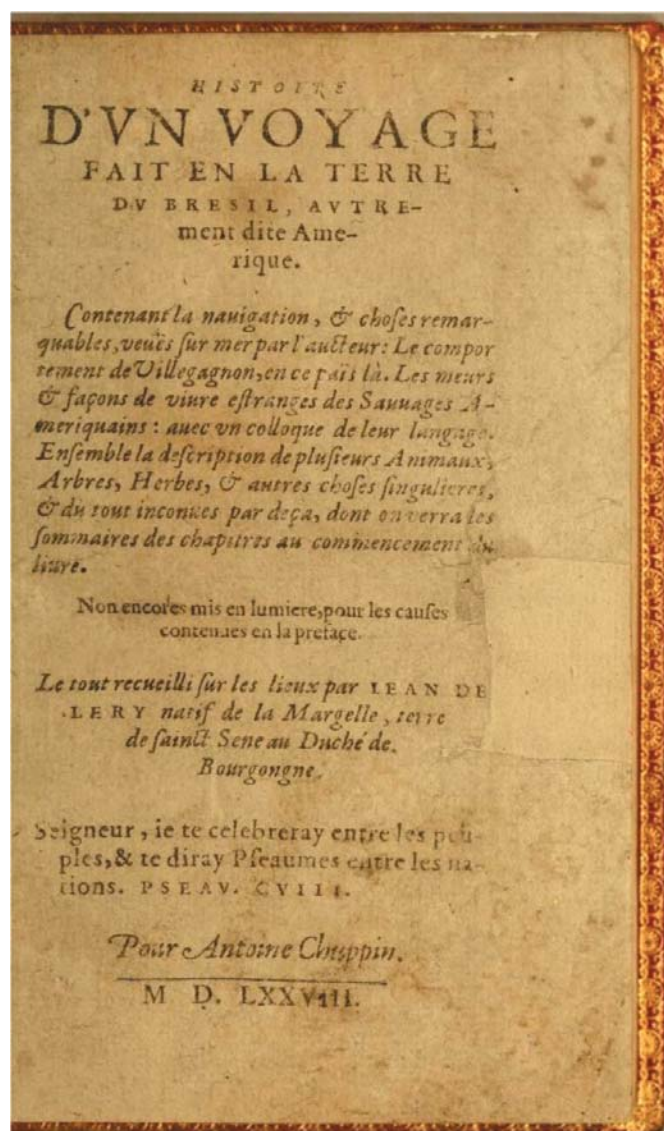 HISTOIRE
D'VN VOYAGE
FAIT EN LA TERRE
DV BRESIL, AVTRE-
ment dite Ame-
rique.
Contenant la nauigation, & choses remar-
quables, veuës sur mer par l'aucteur: Le compor
tement de Villegagnon, en ce païs là. Les meurs
& façons de viure estranges des Sauuages A-
meriquains: auec vn colloque de leur langage.
Ensemble la description de plusieurs Animaux,
Arbres, Herbes, & autres choses singulieres,
& du tout inconues par deça, dont on verra les
sommaires des chapitres au commencement du
liure.
Non encores mis en lumiere, pour les causes
contenues en la preface.
Le tout recueilli sur les lieux par IEAN DE
LERY natif de la Margelle, terre
de sainct Sene au Duché de
Bourgongne.
Seigneur, ie te celebreray entre les peu-
ples, & te diray Pseaumes entre les na-
tions. PSEAV. CVIII.
Pour Antoine Chuppin.
M D. LXXVIII.